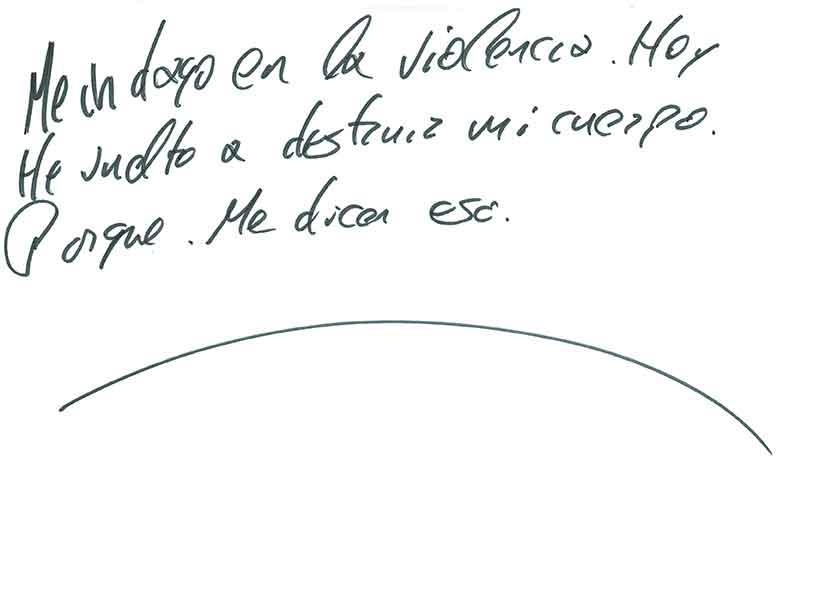 Me indago en la violencia. Hoy
He vuelto a destruir mi cuerpo.
Porque. Me dicen eso.